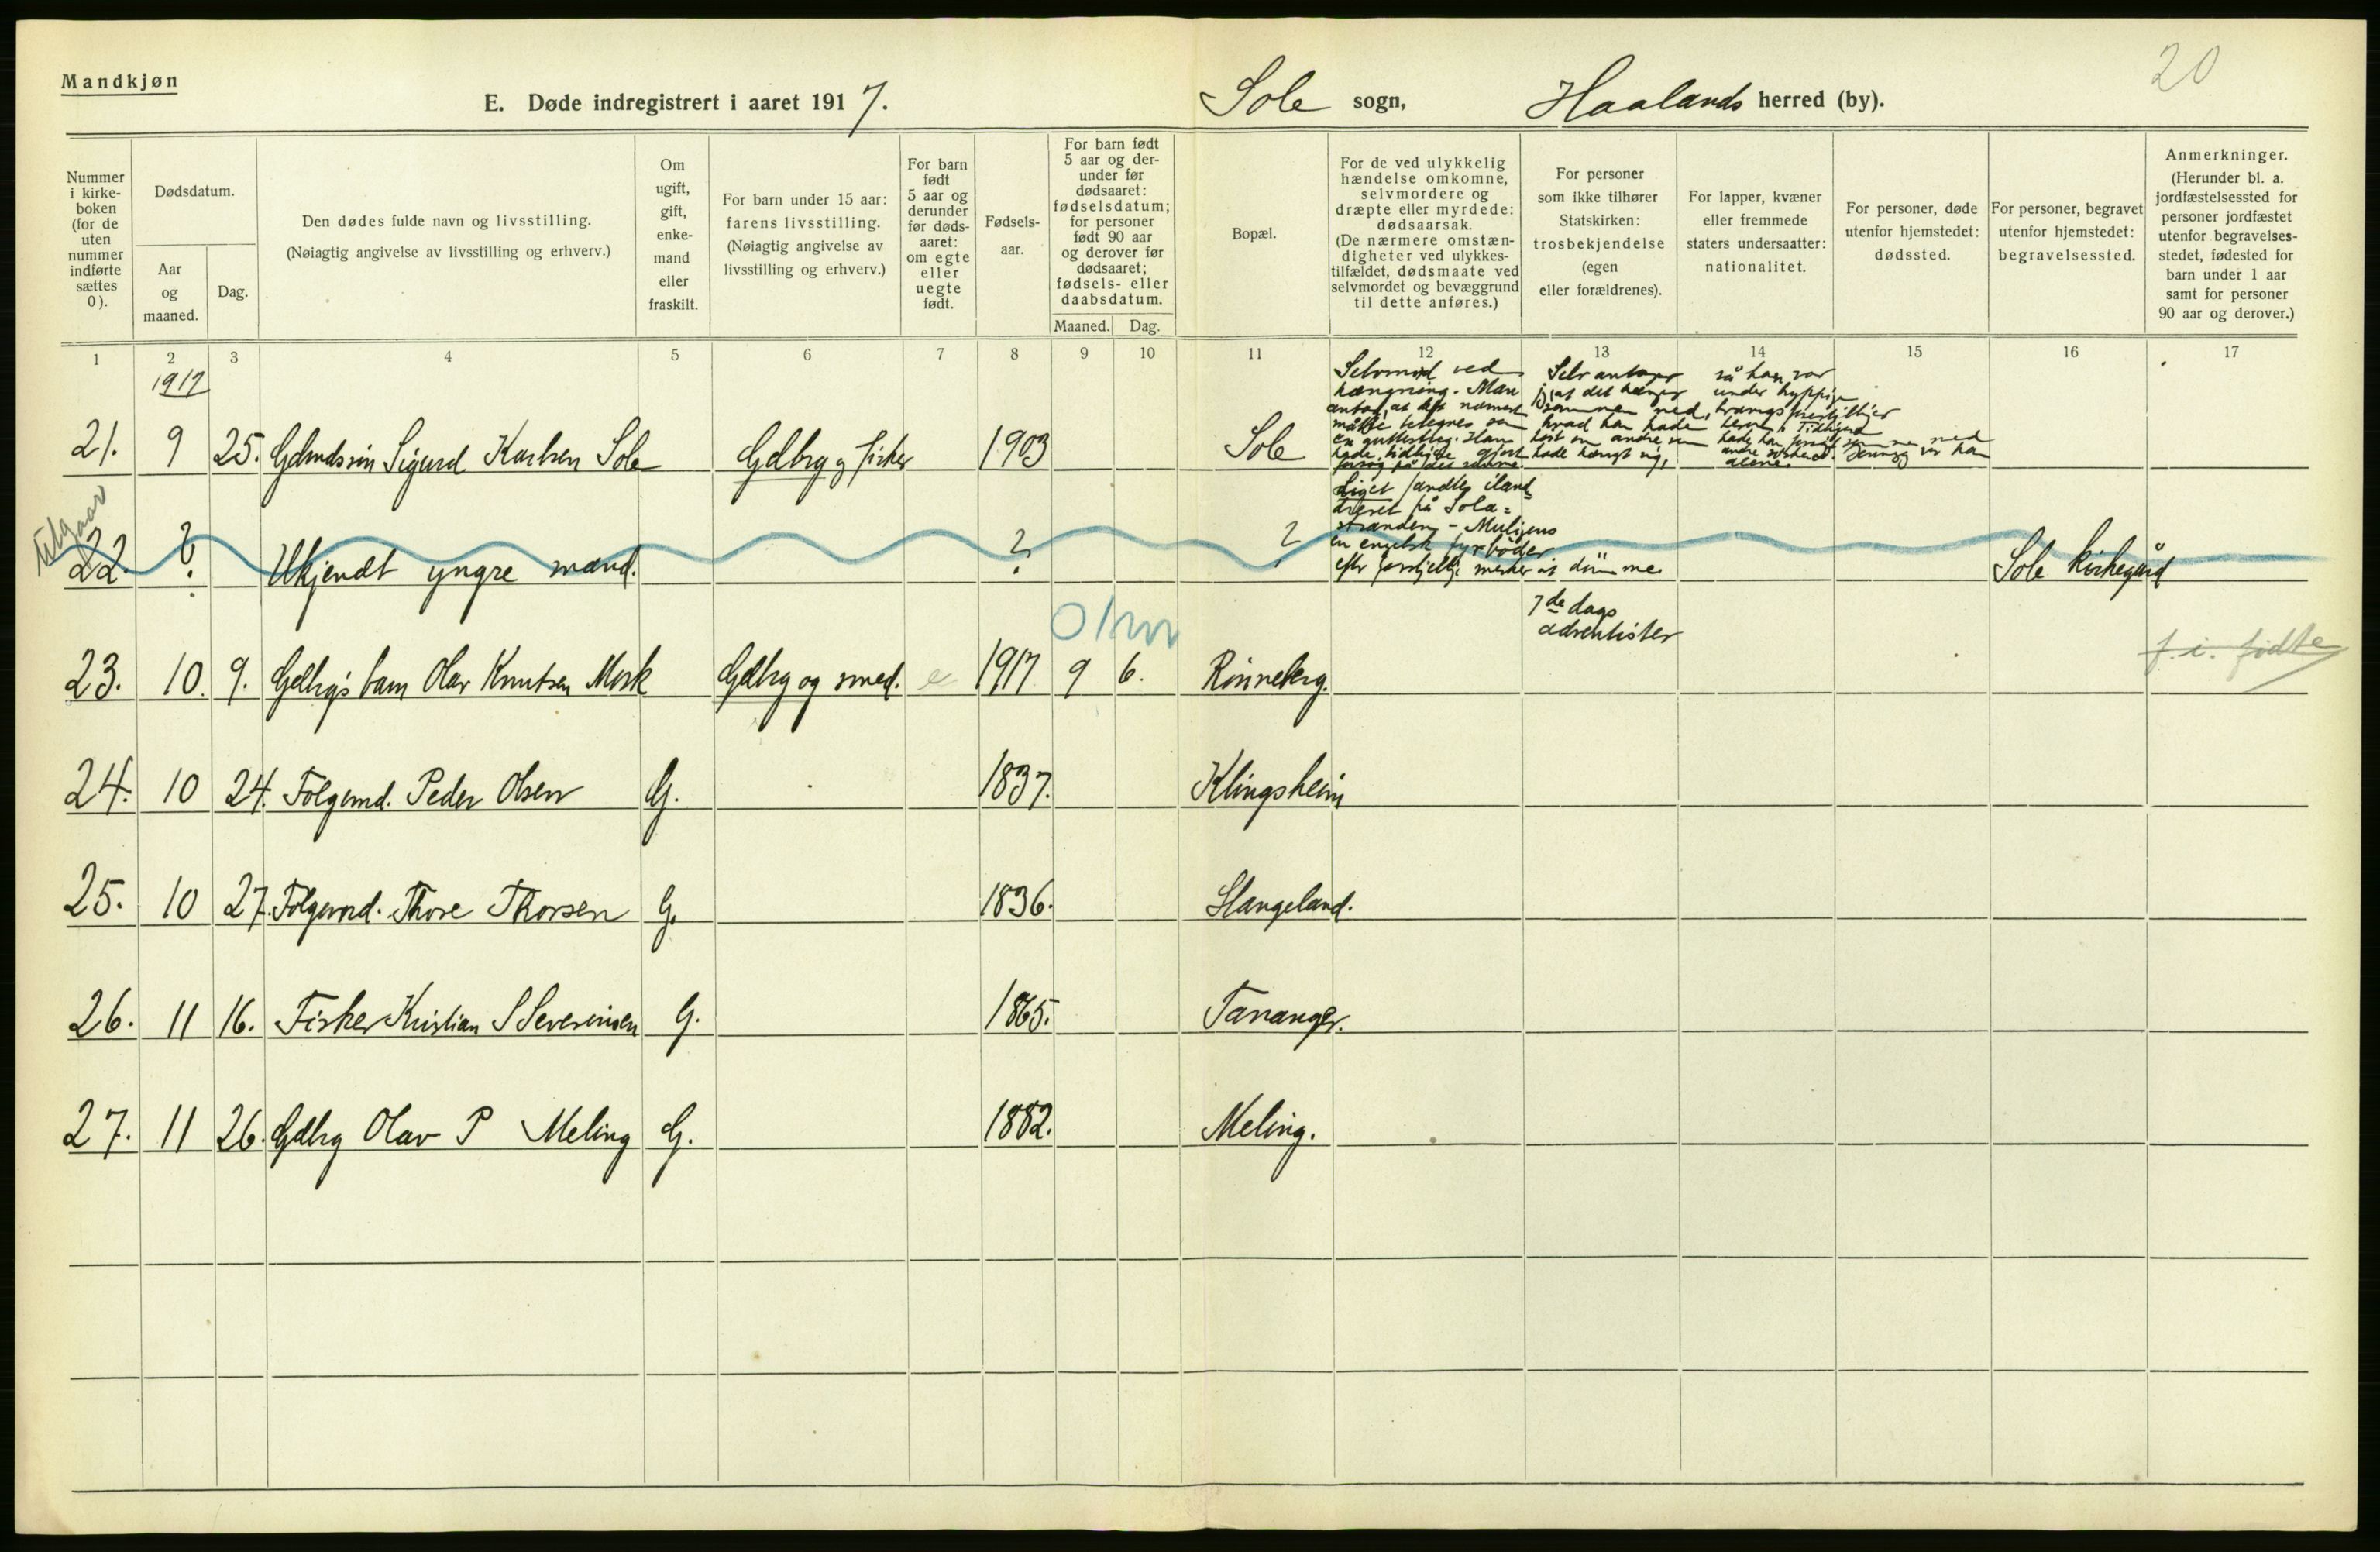 20
Mandkjøn
E. Døde indregistrert i aaret 1917. Sole sogn, Haalands herred (by).
Nummer i kirkeboken (for de uten nummer indførte sættes 0).
Dødsdatum.
Aar og maaned.
Dag.
Den dødes fulde navn og livsstilling.
(Nøiagtig angivelse av livsstilling og erhverv.)
Om ugift, gift, enkemand eller fraskilt.
For barn under 15 aar: farens livsstilling. (Nøiagtig angivelse av livsstilling og erhverv.)
For barn født 5 aar og derunder før dødsaaret: om egte eller uegte født.
Fødselsaar.
For barn født 5 aar og derunder før dødsaaret: fødselsdatum; for personer født 90 aar og derover før dødsaaret; fødsels- eller daabsdatum.
Maaned. Dag.
Bopæl.
For de ved ulykkelig hændelse omkomne, selvmordere og dræpte eller myrdede: dødsaarsak. (De nærmere omstændigheter ved ulykkestilfældet, dødsmaate ved selvmordet og bevæggrund til dette anføres.)
For personer som ikke tilhører Statskirken: trosbekjendelse (egen eller forældrenes).
For lapper, kvæner eller fremmede staters undersaatter: nationalitet.
For personer, døde utenfor hjemstedet: dødssted.
For personer, begravet utenfor hjemstedet: begravelsessted.
Anmerkninger. (Herunder bl. a. jordfæstelsessted for personer jordfæstet utenfor begravelsesstedet, fødested for barn under 1 aar samt for personer 90 aar og derover.)
1 2 3 4 5 6 7 8 9 10 11 12 13 14 15 16 17
1917
21. 9 25. Sigurd Karlsen Sole Gdbrg og fisker 1903 Sole
Selvmord ved
hængning. Man
Selv antager
jeg at det hænger
sammen med,
hvad han hade
hørt om andre som
hade hængt sig,
så han var
under hyppige
utgaar
22. ? Ukjendt yngre mand. ? ? Sole kirkegård
Liget fandtes iland-
drevet på Sola=
stranden - Muligens
en engelsk fyrbøder
efter forskjellige merker at dømme.
23. 10. 9. Gdbrg's barn Olav Knutsen Mork Gdbrg og smed. e 1917 9 6. Rönneberg.
7de dags
adventister
f. i. fødte
24. 10 24. Folgemd. Peder Olsen G. 1837. Klingsheim
25. 10 27. Folgemd. Thore Thorsen G. 1836. Stangeland.
26. 11 16. Fisker Kristian S Severinsen G. 1865. Tananger.
27. 11 26. Gdbrg Olav P Meling G. 1882. Meling.